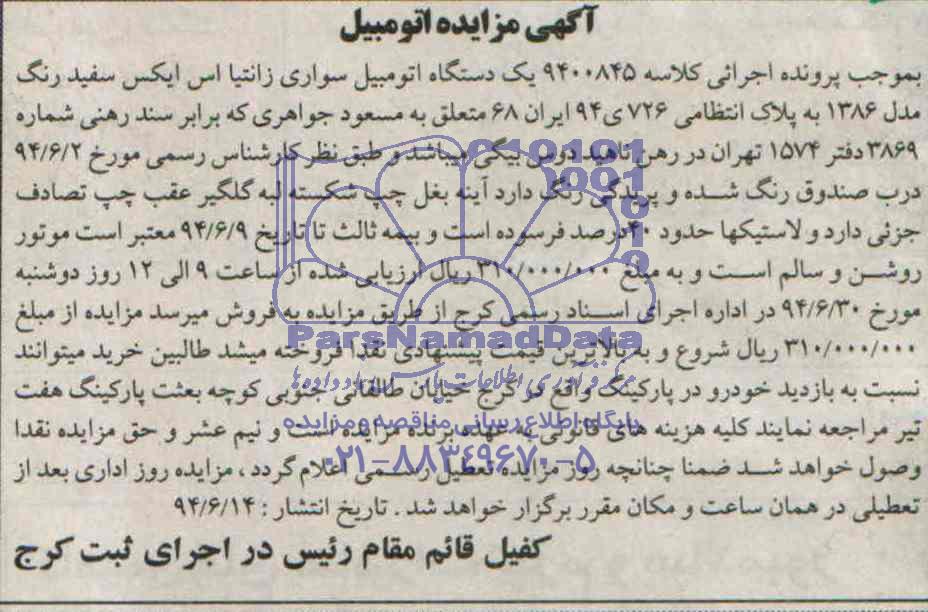 آگهی مزایده اتومبیل
بموجب پرونده اجرائی کلاسه ۹۴۰۰۸۴۵ یک دستگاه اتومبیل سواری زانتیا اس ایکس سفید رنگ
مدل ۱۳۸۶ به پلاک انتظامی ۷۲۶ ی ۹۴ ایران ۶۸ متعلق به مسعود جواهری که برابر سند رهنی شماره
۳۸۶۹ دفتر ۱۵۷۴ تهران در رهن ناهید دوس بیگی میباشد و طبق نظر کارشناس رسمی مورخ ۹۴/۶/۲
درب صندوق رنگ شده و پریدگی رنگ دارد آینه بغل چپ شکسته لبه گلگیر عقب چپ تصادف
جزئی دارد و لاستیکها حدود ۴۰درصد فرسوده است و بیمه ثالث تا تاریخ ۹۴/۶/۹ معتبر است موتور
روشن و سالم است و به مبلغ ۳۱۰/۰۰۰/۰۰۰ ریال ارزیابی شده از ساعت ۹ الی ۱۲ روز دوشنبه
مورخ ۹۴/۶/۳۰ در اداره اجرای اسناد رسمی کرج از طریق مزایده به فروش میرسد مزایده از مبلغ
ParsNamadData
۳۱۰/۰۰۰/۰۰۰ ریال شروع و به بالاترین قیمت پیشنهادی نقدا فروخته میشد طالبین خرید میتوانند
نسبت به بازدید خودرو در پارکینگ واقع در کرج خیابان طالقانی جنوبی کوچه بعثت پارکینگ هفت
پایگاه اطلاع رسانی مناقصه و مزایده
تیر مراجعه نمایند کلیه هزینه های قانونی به عهده برنده مزایده است و نیم عشر و حق مزایده نقدا
۰۲۱-۸۸۳۴۹۶۷۰-۵
وصول خواهد شد ضمنا چنانچه روز مزایده تعطیل رسمی اعلام گردد ، مزایده روز اداری بعد از
تعطیلی در همان ساعت و مکان مقرر برگزار خواهد شد . تاریخ انتشار : ۹۴/۶/۱۴
کفیل قائم مقام رئیس در اجرای ثبت کرج